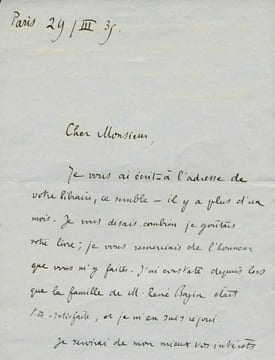 Paris 29/III 35.
Cher Monsieur,
Je vous ai écrit à l'adresse de
votre libraire, ce semble – il y a plus d'un
mois. Je vous disais combien je goûtais
votre livre; je vous remerciais de l'honneur
que vous m'y faites. J'ai constaté depuis lors
que la famille de M. René Bazin était
très satisfaite, et je m'en suis réjoui.
Je servirai de mon mieux vos intérêts